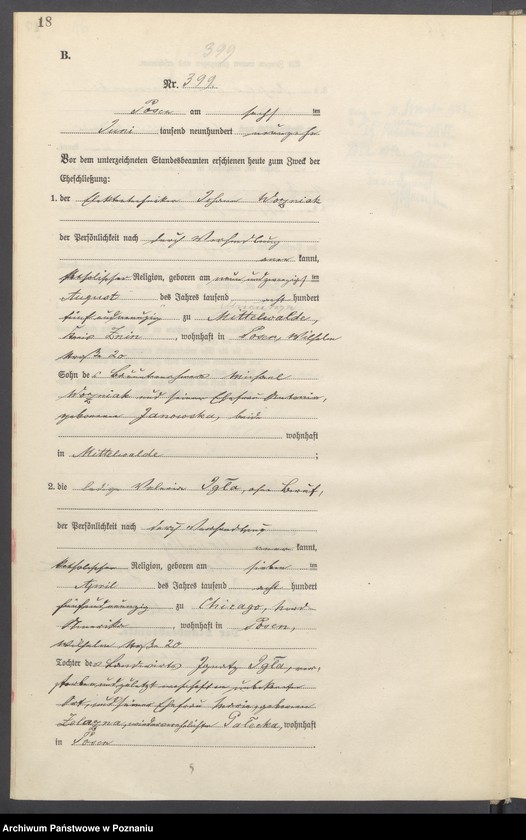 18
399
B.
Nr. 399.
Posen am sechsten
Juni tausend neunhundert neunzehn
Vor dem unterzeichneten Standesbeamten erschienen heute zum Zweck der
Eheschließung:
1. der Elektrotechniker Johann Wozniak
der Persönlichkeit nach durch Verhandlung
aner kannt,
katholischer Religion, geboren am neunundzwanzigsten
August des Jahres tausend acht hundert
fünfundneunzig zu Mittelwalde,
Kreis Znin, wohnhaft in Posen, Wilhelm
straße 20
Sohn des Michael
Wozniak und seiner Ehefrau Antonie,
geborenen Janowska, beide
wohnhaft
in Mittelwalde ;
2. die ledige Valeria Igła, ohne Beruf,
der Persönlichkeit nach durch Verhandlung
aner kannt,
katholischer Religion, geboren am siebenten
April des Jahres tausend acht hundert
fünfundneunzig zu Chicago, Nord-
Amerika, wohnhaft in Posen,
Wilhelmstraße 20
Tochter des Landwirts Ignatz Igła, ver-
storben und zuletzt wohnhaft an unbekanntem
Ort, und seiner Ehefrau Marie, geborenen
Zelazna, wiederverehelichten Pałecka, wohnhaft
in Posen .
Archiwum Państwowe w Poznaniu